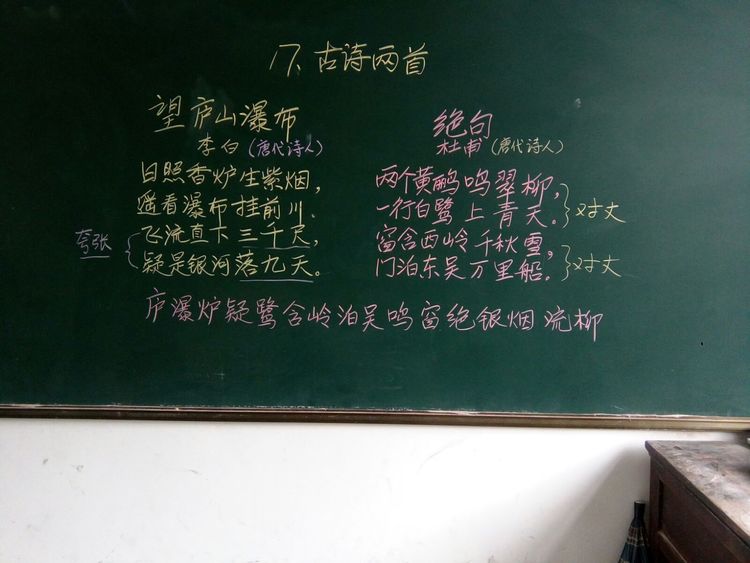 17、古诗两首
望庐山瀑布
李白(唐代诗人)
日照香炉生紫烟,
遥看瀑布挂前川.
飞流直下三千尺,
疑是银河落九天。
夸张
绝句
杜甫(唐代诗人)
两个黄鹂鸣翠柳,
一行白鹭上青天。
对丈
窗含西岭千秋雪,
门泊东吴万里船.
对丈
庐瀑炉疑鹭含岭泊吴鸣窗绝银烟流柳